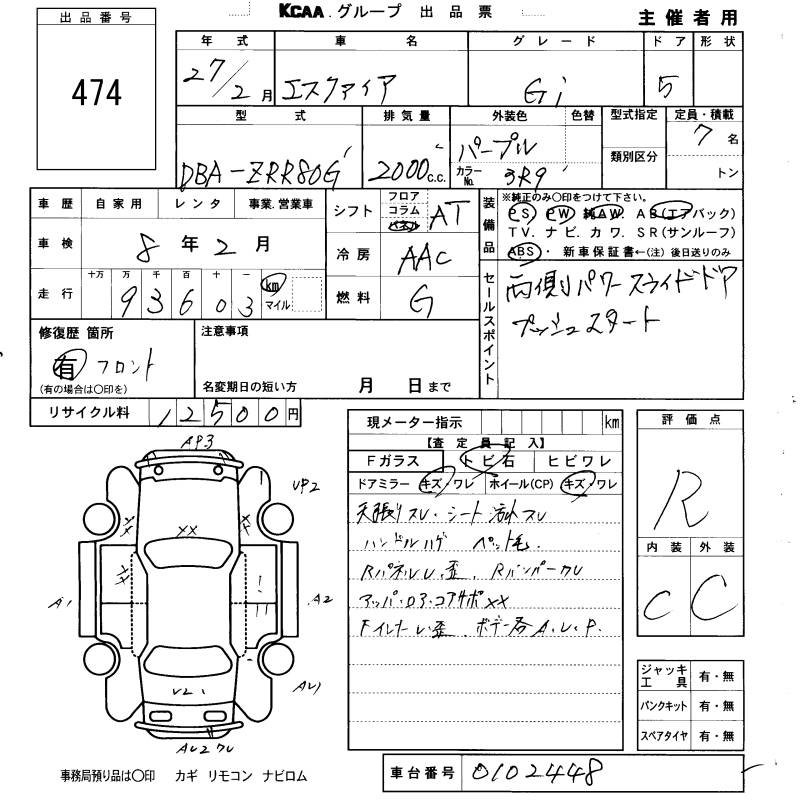 出品番号
474
KCAA グループ 出品票
主催者用
年式 車名 グレード ドア 形状
27/2月 エスクァイア Gi 5
型式 排気量 外装色 色替 型式指定 定員・積載
DBA-ZRR80G 2000c.c. パープル 7名
カラーNo. 3R9 類別区分 トン
車歴 自家用 レンタ 事業.営業車
車検 8年2月
走行 十万 万 千 百 十 一
93603 km マイル
シフト フロア コラム パネル AT
冷房 AAC
燃料 G
装備品
※純正のみ○印をつけて下さい。
PS PW 純AW. AB(エアバック)
TV. ナビ. カワ. SR(サンルーフ)
ABS・ 新車保証書←(注) 後日送りのみ
セールスポイント
両側パワースライドドア
プッシュスタート
修復歴 箇所
有 フロント
(有の場合は○印を)
注意事項
名変期日の短い方 月 日まで
リサイクル料 12500円
現メーター指示 km
【査定員記入】
Fガラス トビ石 ヒビワレ
ドアミラー キズ・ワレ ホイール(CP) キズ・ワレ
天張りスレ・シート スレ
ハンドルハゲ ペット毛.
RパネルU.歪. Rバンパークレ
アッパ・ロア・コアサポXX
Fインナーレ歪. ボデー各A.U.P.
評価点
R
内装 外装
C C
ジャッキ 工具 有・無
パンクキット 有・無
スペアタイヤ 有・無
AP3
UP2
XX
A1
A2
AU1
AU2
事務局預り品は○印 カギ リモコン ナビロム
車台番号 0102448